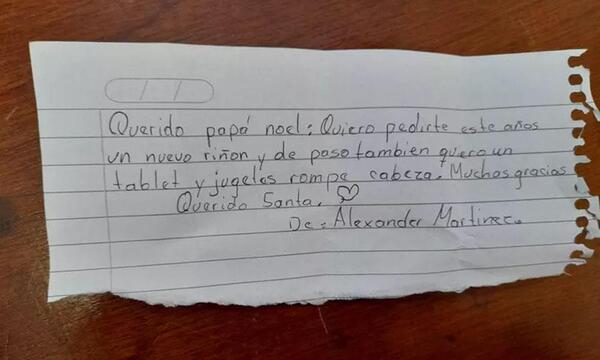 / /
Querido papá noel: Quiero pedirte este años
un nuevo riñon y de paso tambien quiero un
tablet y jugetes rompe cabeza. Muchas gracias
Querido Santa. ♡
De: Alexander Martinez.